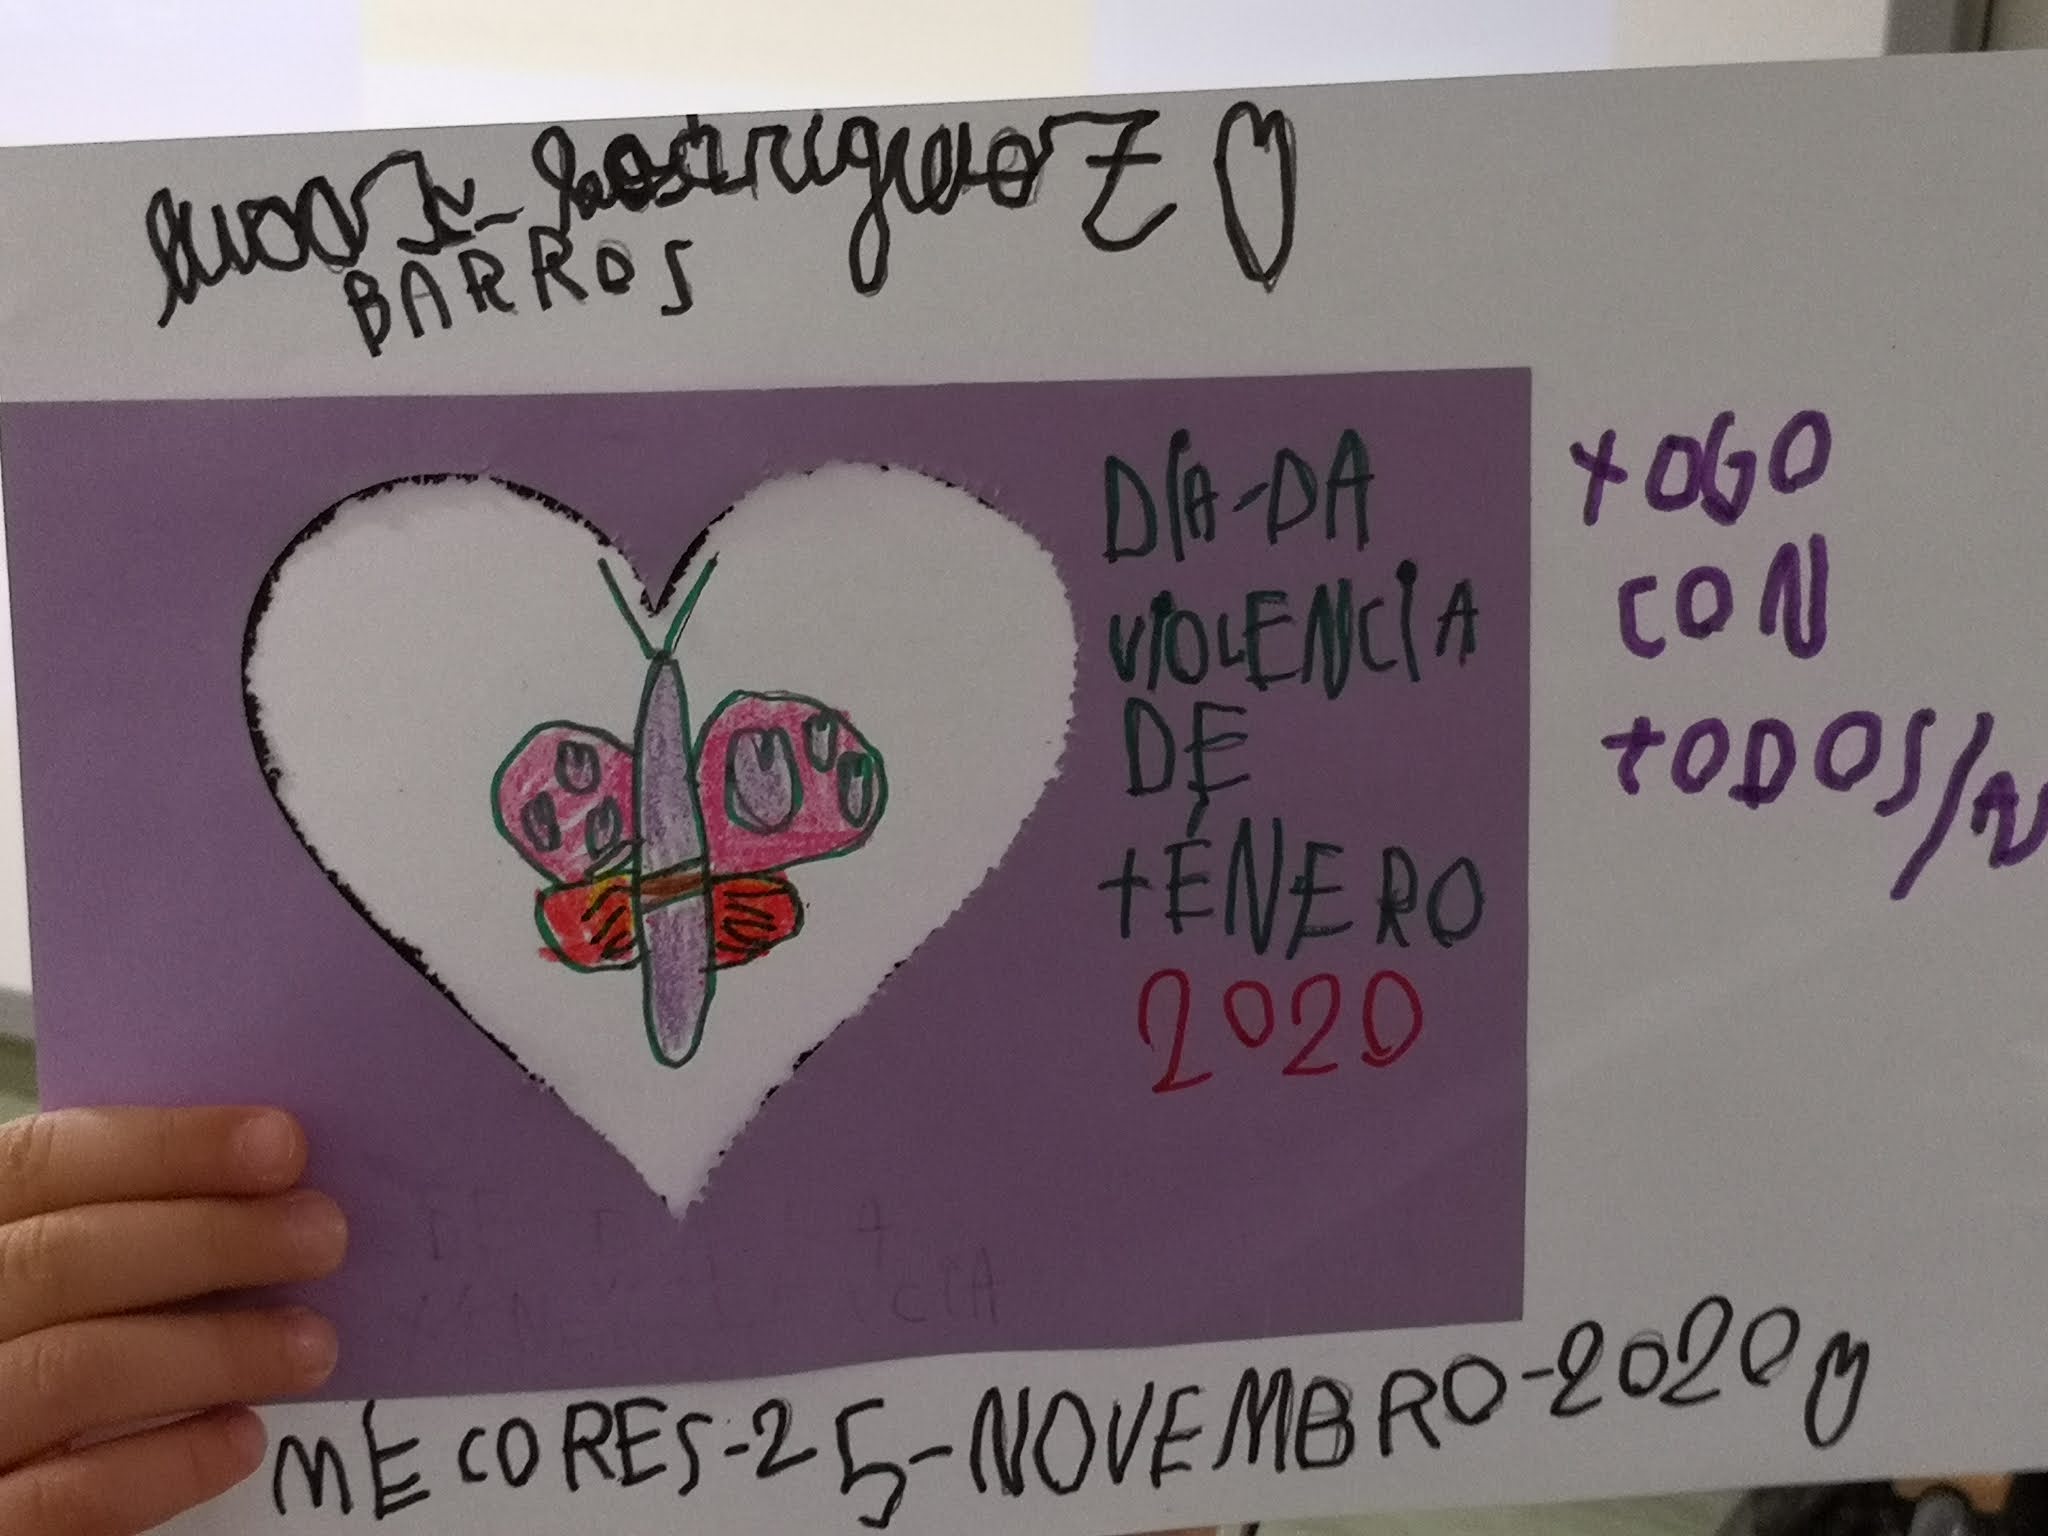 Rodriguez
BARROS
DÍA-DA
VIOLENCIA
DE
TÉNERO
2020
XOGO
CON
TODOS/
MÉCORES-25-NOVEMBRO-2020